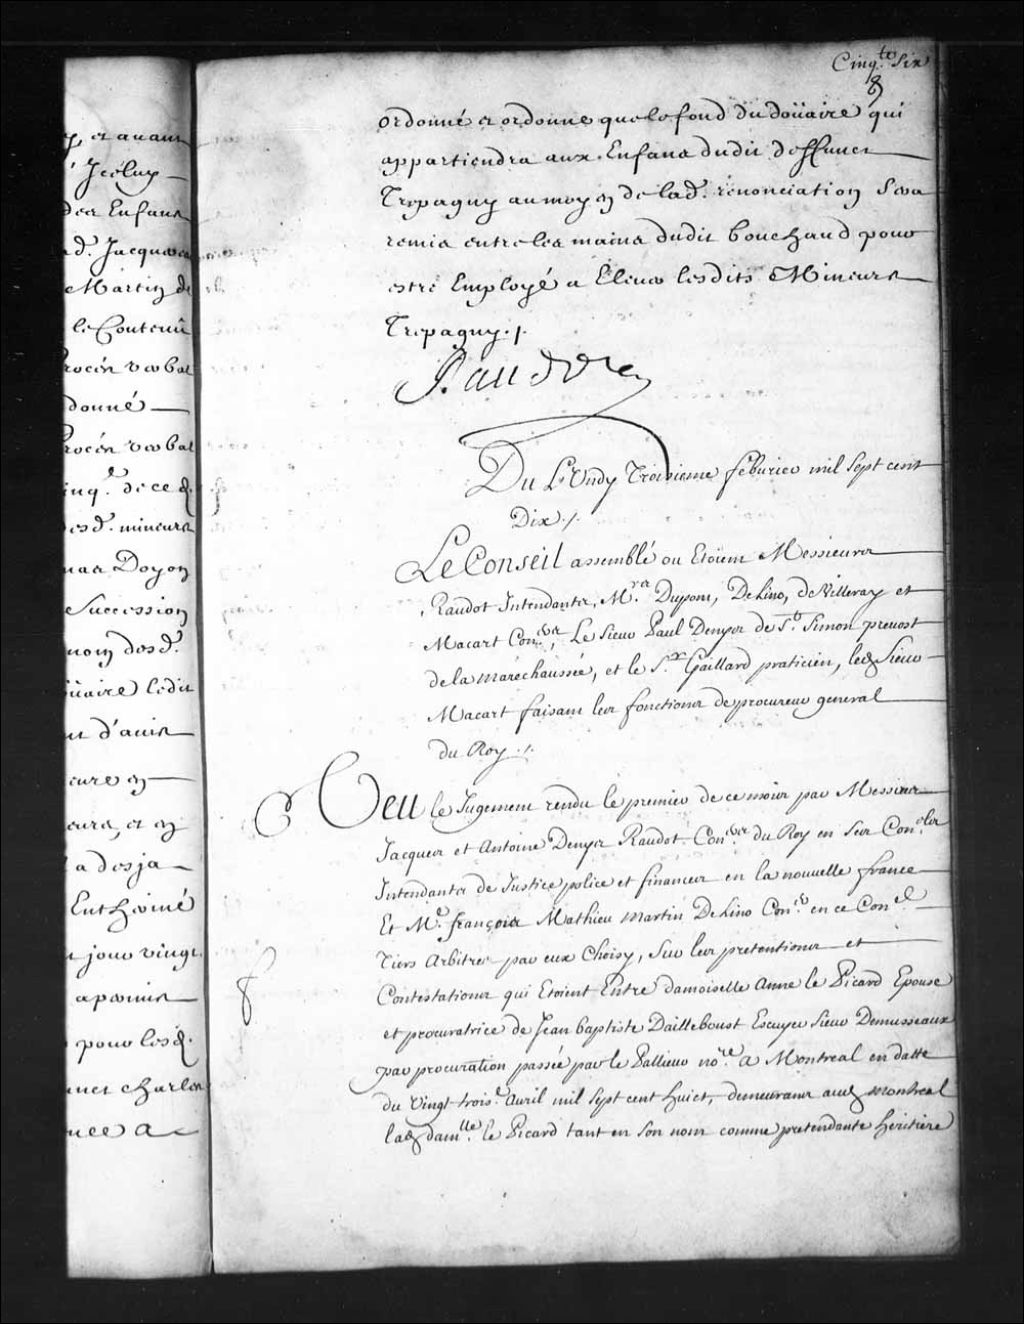 y, et avant
Jceluy
des Enfans
d. Jacques
Martin de
le Contenû
rocés verbal
donné
Procés verbal
inq.e de ce
desd. mineurs
mas Doyon
Succession
nom desd.
üaire ledit
nt d'avis
eure en
eurs, et en
a desja
Entheriné
jour vingt
apermis
pour lesd.
unct charles
nce a
Cinq.te Six
8
ordonné et ordonne que le fond du doüaire qui
appartiendra aux Enfans dudit deffunct
Trepagny au moyen de lad. renonciation sera
remis entre les mains dudit bouchard pour
estre Employé a Elever lesdits Mineurs
Trepagny ./.
Raudot
Du Lundy Troisieme feburier mil sept cent
Dix ./.
Le Conseil assemblé ou Etoient Messieurs
Raudot Intendants, M.rs Dupont, De Lino, de Villeray et
Macart Con.ers, Le Sieur Paul Denys de S.t Simon prevost
de la maréchaussée, et le S.r Gaillard praticien, led. Sieur
Macart faisant les fonctions de procureur general
du Roy ./.
Veu le Jugement rendu le premier de ce mois par Messieurs
Jacques et Antoine Denys Raudot Con.ers du Roy en ses Con.els
Intendants de Justice police et finances en la nouvelle france
Et M.e françois Mathieu Martin De Lino Con.er en ce Con.el
Tiers Arbitres par eux Choisy, Sur les pretentions et
Contestations qui Etoient Entre damoiselle Anne le Picard Epouse
et procuratrice de Jean baptiste Dailleboust Escuyer Sieur Demusseaux
par procuration passée par le Pallieur no.re a Montreal en datte
du vingt trois.e avril mil sept cent huict, demeurans aud. Montreal
lad. dam.lle le Picard tant en son nom comme pretendante héritière